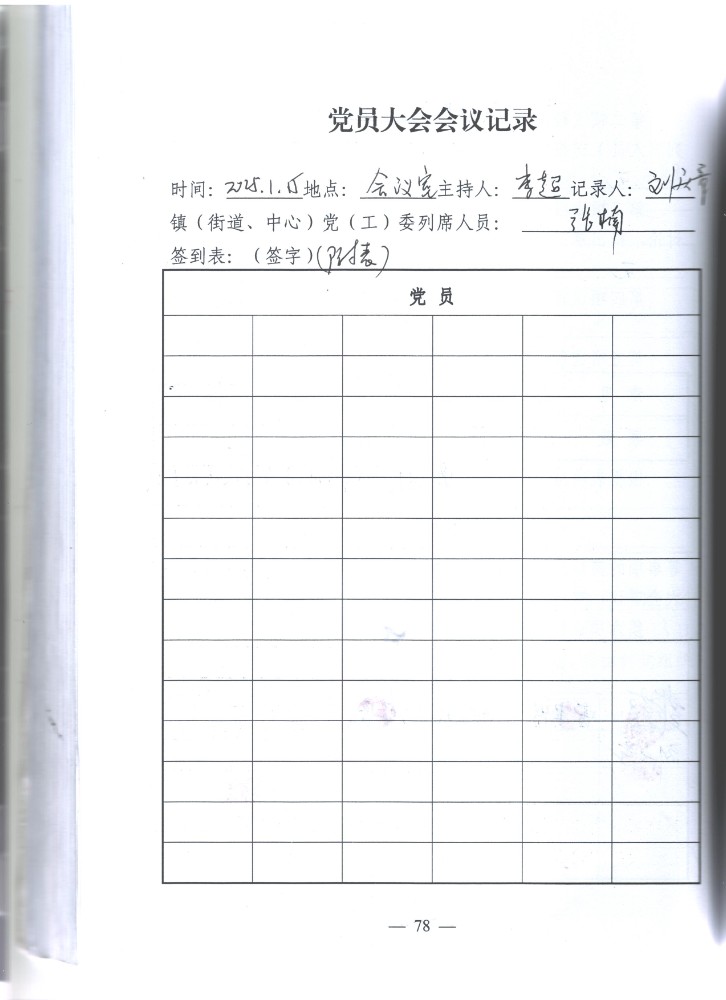 党员大会会议记录
时间：2025.1.15 地点：会议室 主持人：李超 记录人：刘
镇（街道、中心）党（工）委列席人员：张楠
签到表：（签字）（附表）
党员
— 78 —